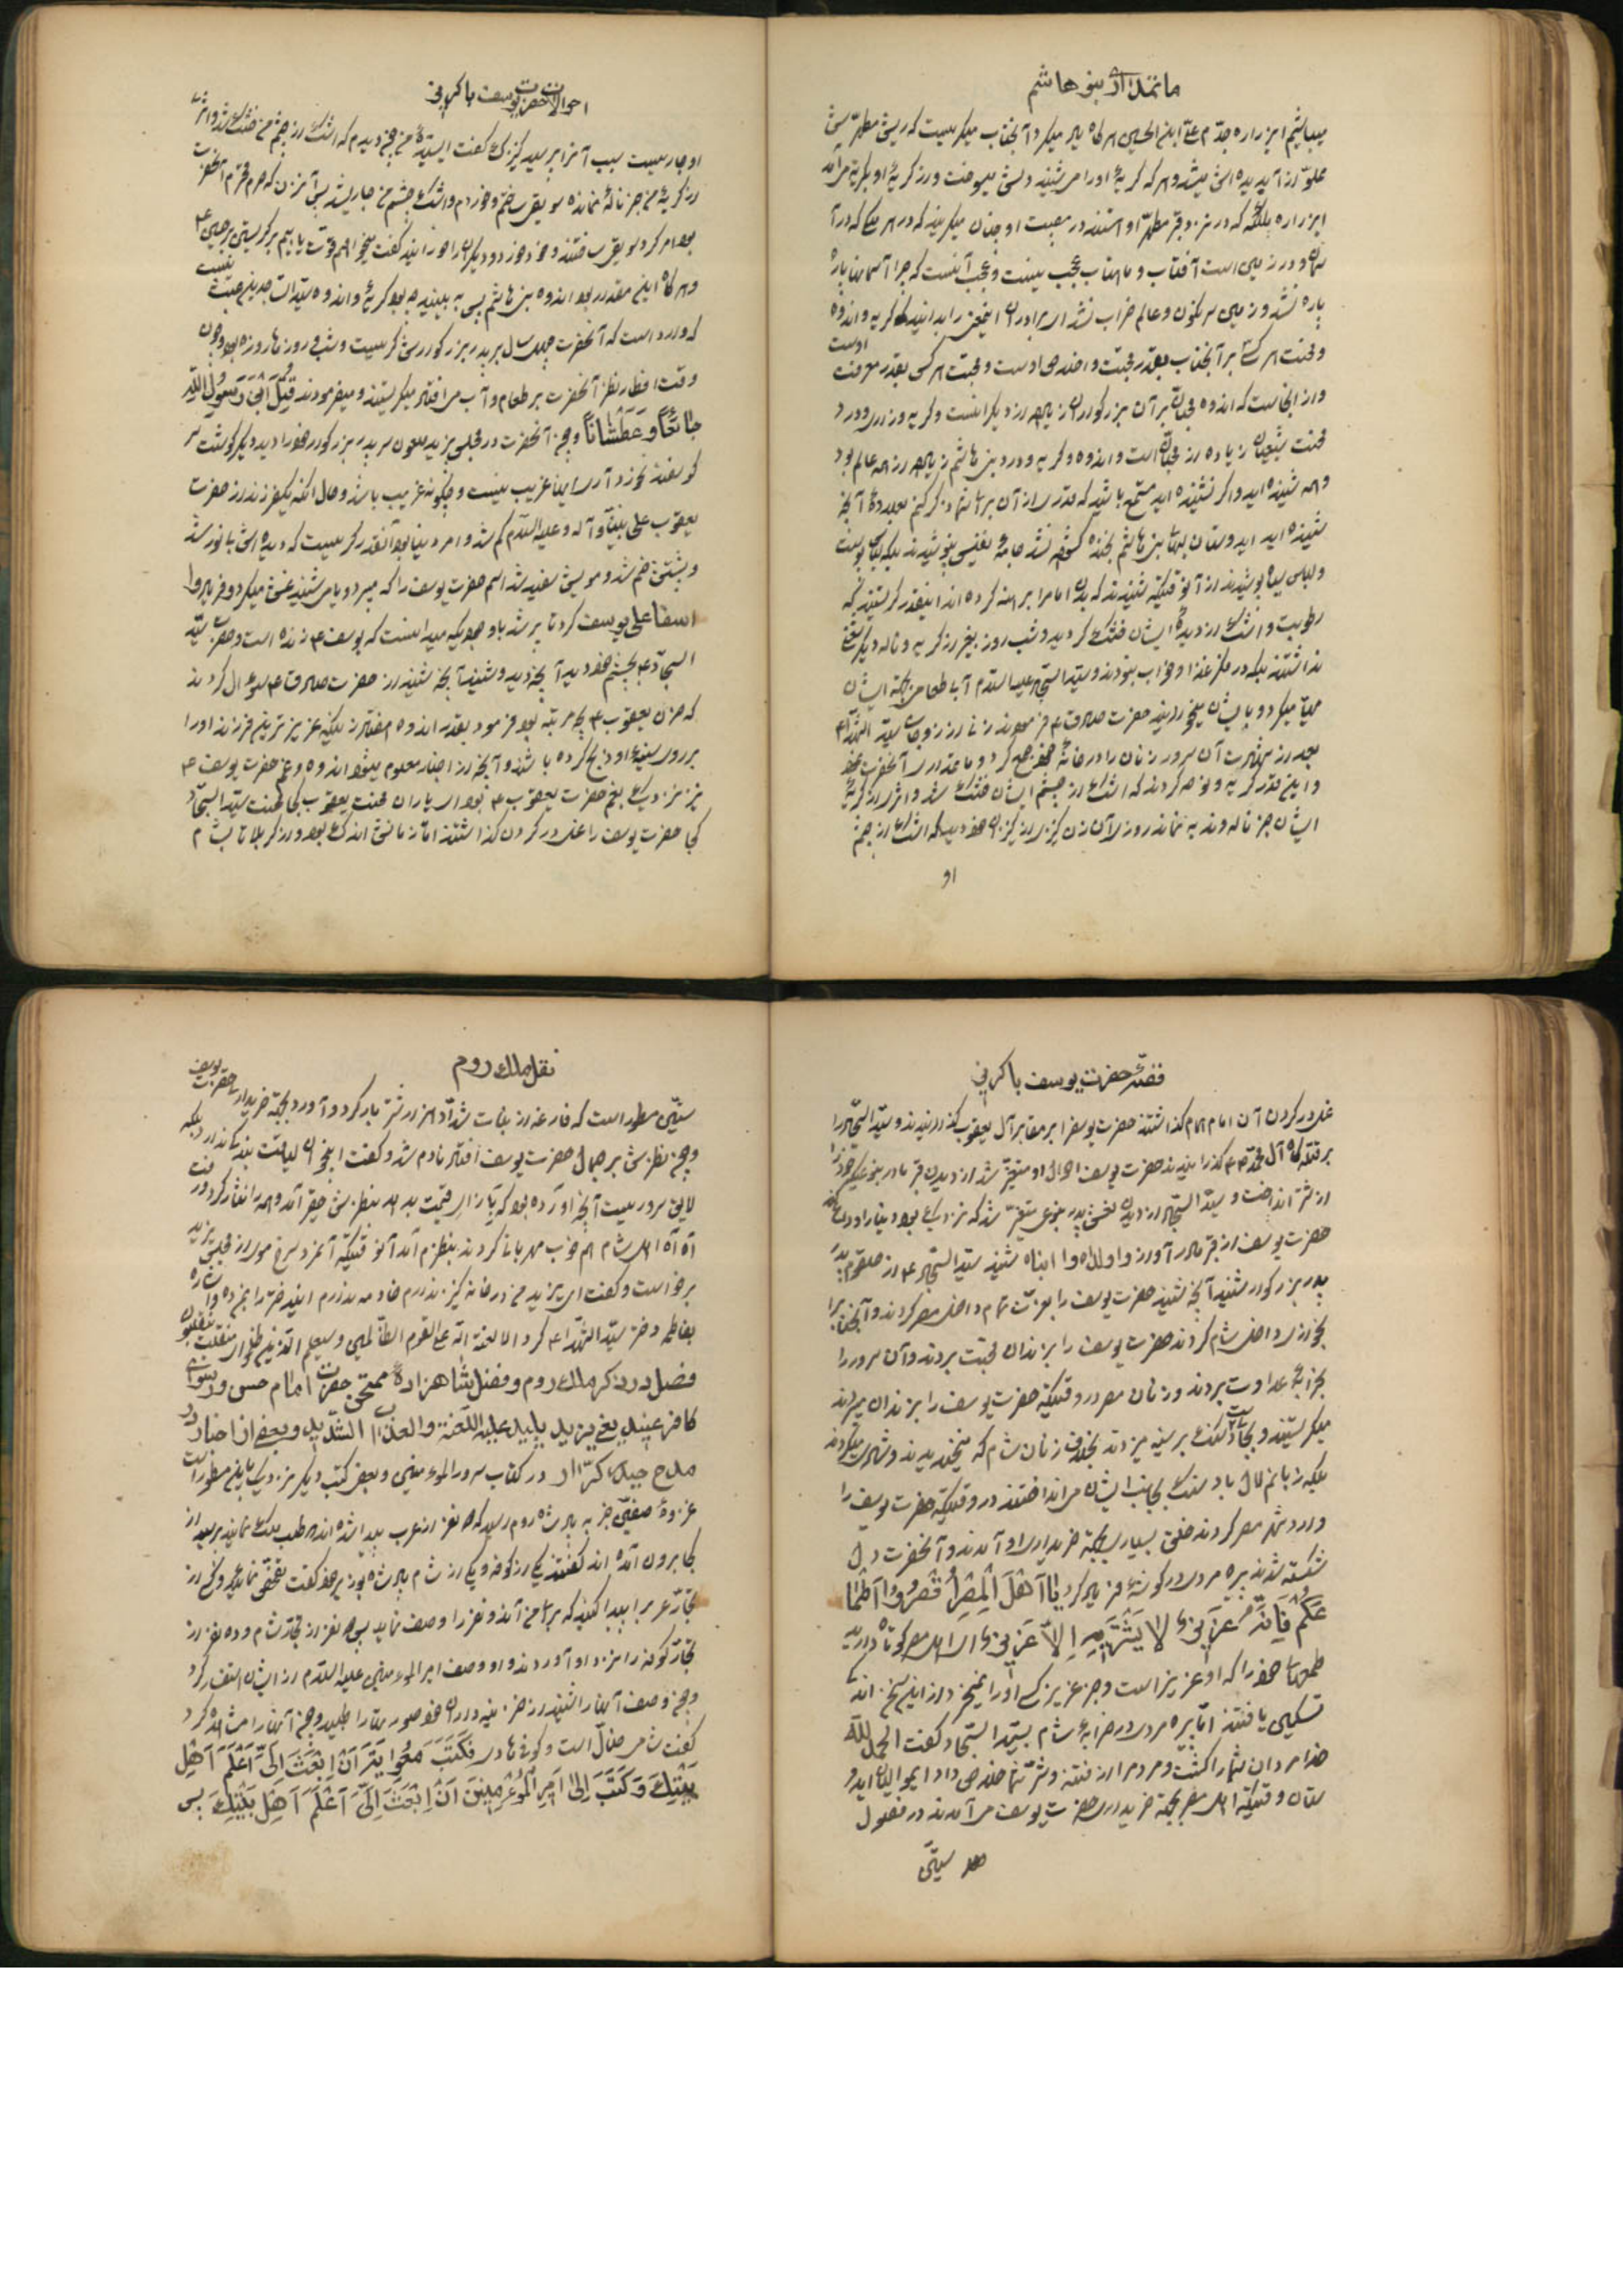 ماتمداری بنو هاشم
میباشیم ابن زراره جدم علی ابن الحسین هرگاه یاد میکرد آنجناب میگریست که ریش مطهرش
مملو از آب دیده اش میشد و هر که گریهٔ او را می شنید دلش میسوخت و از گریهٔ او بگریه می آمد
ای زراره ملائکه که در نزد قبر مطهر او هستند در مصیبت او چنان میگریند که در هر ملکی که در آ
سمان و در زمین است آفتاب و ماهتاب عجب نیست و عجب آنست که چرا آسمانها پاره
پاره نشد و زمین سرنگون و عالم خراب نشد ای برادران اینمعنی را بدانید که گریه و اندوه
و محنت هر کس بر آنجناب بقدر محبت و اخلاص اوست و محبت هر کسی بقدر معرفت اوست
و از اینجاست که اندوه محبان بر آن بزرگوار زیاده از دیگرانست و گریه و زاری و درد
محنت شیعیان زیاده از محبان است و اندوه و گریه و درد بنی هاشم زیاده از همه عالم بود
و همه شنیده اید و اگر نشنیده اید مستمع باشید که قدری از آن برای شما ذکر کنم بعد
شنیده اید ای دوستان لبهای بنی هاشم بخنده گشوده نشد جامهٔ نفیس نپوشیدند بلکه لباس
و لباس سیاه پوشیدند از آنوقتیکه شنیدند که بدن امام را برهنه کرده اند اینقدر گریستند که
رطوبت و اشک از دیدهٔ ایشان خشک گردید و شب و روز بغیر از گریه و ناله دیگر شغلی
نداشتند بلکه در فکر غذا و خواب نبودند و سید السجاد علیه السلام آب و طعام بجهة ایشان
مهیا میکرد و بایشان میخورانید حضرت صادق ع فرمودند زنی از زوجات سید الشهدا ع
بعد از شهادت آن سرور زنان را در خانهٔ خود جمع کرد و ماتمداری آنحضرت
و اینقدر گریه و نوحه کردند که اشک از چشم ایشان خشک شد و اثر از گریهٔ
ایشان جز ناله و ندبه نماند روزی آن زن کنیزی از کنیزان خود دید که اشک از چشم
او
احوالات حضرت یوسف با کربنی
او جاریست سبب آنرا پرسید کنیزک گفت ای سیده من چون دیدم که اشک از چشم من خشک شد و اثری
از گریهٔ من جز ناله نمانده سویق ساختم و خوردم و اشک چشم من جاری شد پس آنزن که حرم محترم آنحضرت
بود امر کرد سویق ساختند و خود خورد و دیگران را خورانید گفت میخواهم قوت یابیم بر گریستن بر حسین ع
و هرگاه اینمقدار بود اندوه بنی هاشم پس به بینید چه بود گریهٔ و اندوه سید السجاد بیجهت نیست
که وارد است که آنحضرت چهل سال بر پدر بزرگوارش گریست و شبی و روزها روزه بود و چون
وقت افطار نظر آنحضرت بر طعام و آب می افتاد میگریستند و میفرمودند قُتِلَ ابْنُ رَسُولِ اللهِ
جَائِعًا وَ عَطْشَانًا و چون آنحضرت در مجلس یزید ملعون سر پدر بزرگوار خود را دید دیگر گوشت سر
گوسفند نخورد آری اینها غریب نیست و چگونه غریب باشد و حال آنکه یکفرزند از حضرت
یعقوب علی نبینا و آله و علیه السلام گم شد و امر دنیا بود آنقدر گریست که دیده اش بی نور شد
و پشتش خم شد و مویش سفید شد اسم حضرت یوسف را که میبرد و یا می شنید غش میکرد و فریاد وا
اسفا علی یوسف کرد تا پیر شد با وجودیکه میدانست که یوسف ع زنده است و حضرت سید
السجاد ع بچشم خود دید آنچه دید و شنید آنچه شنید از حضرت صادق ع سوال کردند
که حزن یعقوب ع بچه مرتبه بود فرمود بقدر اندوه هفتاد زنیکه عزیزترین فرزند او را
بر روی سینهٔ او ذبح کرده باشند و آنچه از اخبار معلوم میشود اندوه و غم حضرت یوسف ع
نیز نزدیک بغم حضرت یعقوب ع بود ای یاران محنت یعقوب کجا محنت سید السجاد
کجا حضرت یوسف را غل در گردن گذاشتند اما زمانش اندکی بود و از کربلا تا بشام
قصهٔ حضرت یوسف با کربنی
غل در گردن آن امام همام گذاشتند حضرت یوسف را بر مقابر آل یعقوب گذرانیدند و سید السجاد را
بر قتلگاه آل محمد ص گذرانیدند حضرت یوسف احوال او متغیر شد از دیدن قبر مادر بنوعیکه خود را
از شتر انداخت و سید السجاد از دیدن نعش پدر بنوعی متغیر شد که نزدیک بود دنیا را وداع کند
حضرت یوسف از قبر مادر آواز وا ولداه وا ابناه شنید سید السجاد ع از حلقوم بریده
پدر بزرگوار شنید آنچه شنید حضرت یوسف را بعزت تمام داخل مصر کردند و آنجناب را
بخواری داخل شام کردند حضرت یوسف را بزندان محبت بردند و آن سرور را
بخرابهٔ عداوت بردند و زنان مصر در وقتیکه حضرت یوسف را بزندان میبردند
میگریستند و بجای سنگ بر سینه میزدند بخلاف زنان شام که میخندیدند و شادی میکردند
بلکه زبانم لال باد سنگ بجانب ایشان می انداختند در وقتیکه حضرت یوسف را
وارد شهر مصر کردند خلق بسیاری بجهة خریداری او آمدند و آنحضرت دل
شکسته شدند پیره مردی در گوشهٔ فریاد کرد یا اَهْلَ الْمِصْرِ قَصِّرُوا اَطْمَا
عَكُمْ فَاِنَّهُ عَزیزٌ لا یَشْتَریهِ اِلاّ عَزیزٌ ای اهل مصر کوتاه دارید
طمعهای خود را که او عزیز است و جز عزیز کسی او را نمیخرد از این سخن اند
تسکین یافتند اما پیره مردی در خرابهٔ شام بسید السجاد گفت الحمد لله
خدا مردان شما را کشت و مردم را از فتنه و شر شما خلاصی داد ایموالیان ایدو
ستان وقتیکه اهل مصر بجهة خریداری حضرت یوسف می آمدند در فصول
ستین
نقل ملك روم
ستین مسطور است که فارعه از بنات شداد هزار شتر بار کرد و آورد بجهة خریداری حضرت یوسف
و چون نظرش بر جمال حضرت یوسف افتاد نادم شد و گفت اینجوان لیاقت بندگی ندارد بلکه
لایق سروریست آنچه آورده بود که بازای قیمت بدهد بنظرش حقیر آمد و همه را نثار کرد و رفت
آه آه اهل شام هم خوب مهربانی کردند بنظرم آمد آنوقتیکه آنمرد سرخ موی از مجلس یزید
برخواست و گفت ای یزید من در خانه کنیز ندارم خادمه ندارم ایندختر را بمن ده و اشاره
بفاطمه دختر سید الشهدا ع کرد الا لعنة الله علی القوم الظالمین و سیعلم الذین ظلموا ای منقلب ینقلبون
فصل در ذکر ملك روم و فضل شاهزادهٔ ممتحن حضرت امام حسن و رسوائی
کافر عنید یعنی یزید پلید علیه اللعنة والعذاب الشدید و بعضی از اخبار در
مدح حیدر کرار در کتاب سرور المومنین و بعض کتب دیگر نزدیک باین مسطور است
غزوهٔ صفین خبر به پادشاه روم رسید که دو نفر از عرب پیدا شده اند طلب ملک مینمایند پرسید از
کجا برون آمده اند گفتند یکی از کوفه و یکی از شام پادشاه بوزیر خود گفت تفحص نمائید و کسی از
تجار عرب را پیدا کنید که برای من آندو نفر را وصف نماید پس دو نفر از تجار شام و ده نفر از
تجار کوفه را نزد او آوردند و او وصف امیر المومنین علیه السلام از ایشان استفسار کرد
و چون وصف آنها را شنید از خزینه داران خود صورتها را طلبید و چون آنها را مشاهده کرد
گفت شامی ضال است و کوفی هادی فَكَتَبَ مُعٰوِیَةَ اَنْ اِبْعَثَ اِلَیَّ اَعْلَمَ اَهْلِ
بَیْتِكَ وَ كَتَبَ اِلیٰ اَمیرِ الْمُؤمِنینَ اَنْ اِبْعَثَ اِلَیَّ اَعْلَمَ اَهْلِ بَیْتِكَ پس